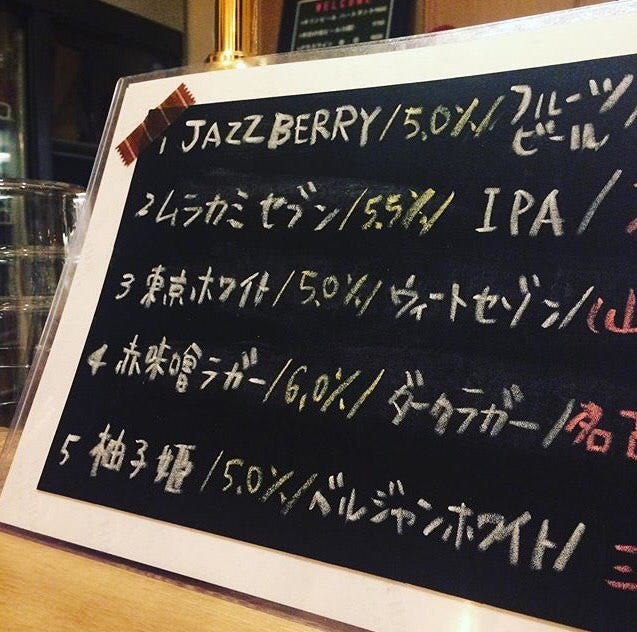 WELCOME
1 JAZZ BERRY/5.0%/フルーツビール
2 ムラカミセブン/5.5%/ IPA/
3 東京ホワイト/5.0%/ ウィートセゾン/(山
4 赤味噌ラガー/6.0%/ ダークラガー/名古
5 柚子姫/5.0%/ベルジャンホワイト/三